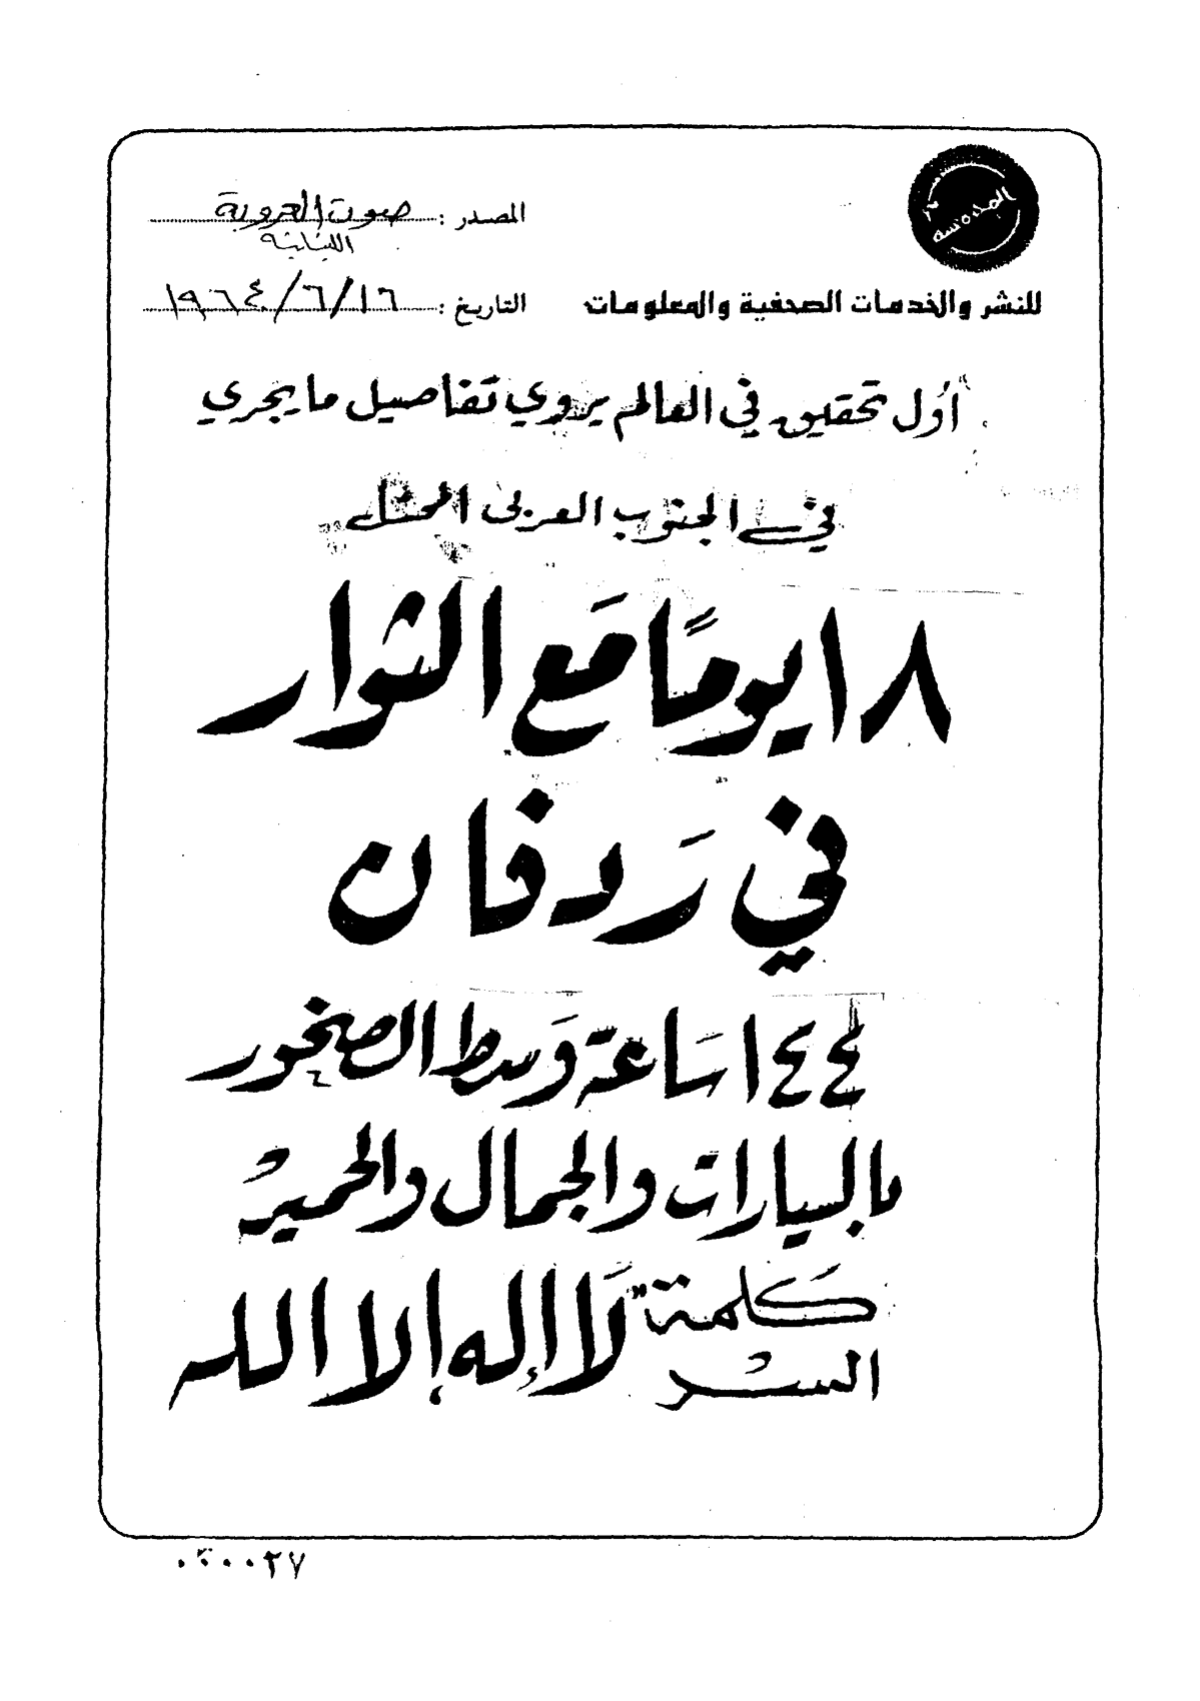 المصدر : صوت العروبة
اللبنانية
للنشر والخدمات الصحفية والمعلومات
التاريخ : ١٩٦٤/٦/١٦
أول تحقيق في العالم يروي تفاصيل ما يجري
في الجنوب العربي المحتل
١٨ يومًا مَع الثوار
في رَدفان
١٤٤ سَاعة وَسط الصخور
بالسيارات والجمال والحمير
كَلمة السر "لَا إله إلا الله